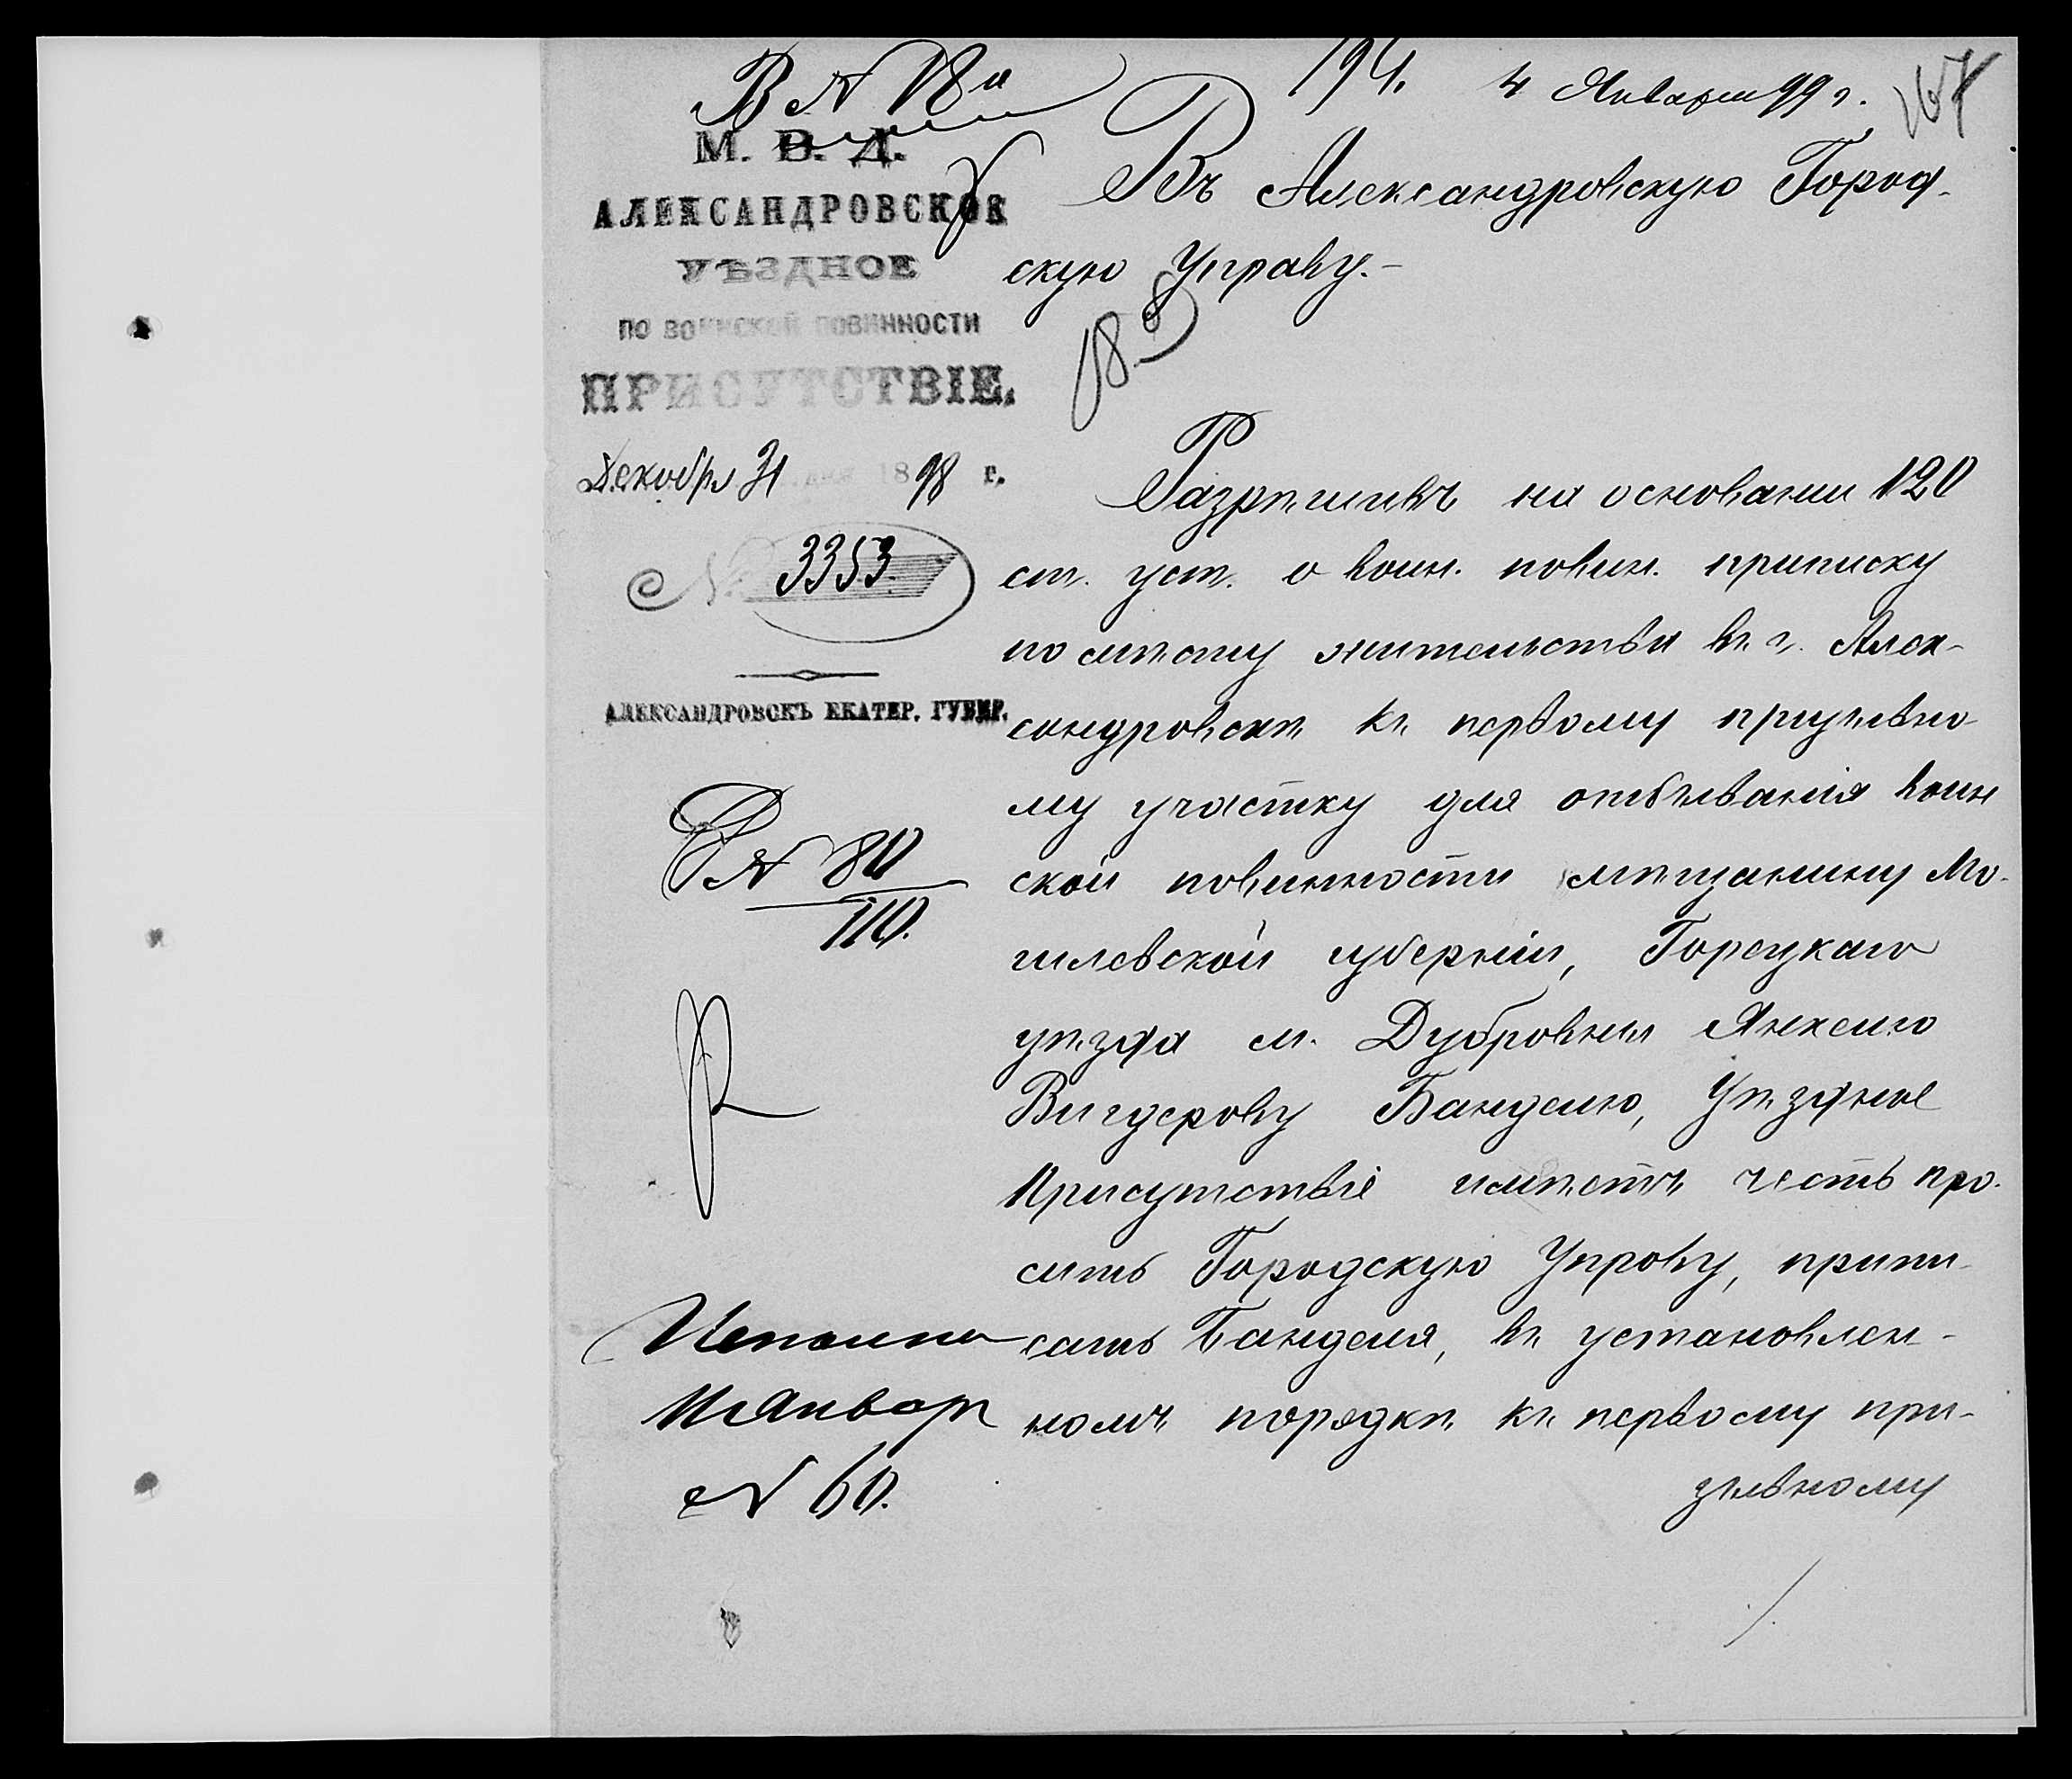 В № 18а
194. 4 Января 99 г.
167
М. В. Д.
АЛЕКСАНДРОВСКОЕ
УѢЗДНОЕ
ПО ВОИНСКОЙ ПОВИННОСТИ
ПРИСУТСТВІЕ.
Декабря 31 дня 1898 г.
№ 3353.
АЛЕКСАНДРОВСКЪ ЕКАТЕР. ГУБЕР.
№ 80
110.
Исполне
11 Январ
№ 60.
Въ Александровскую Город-
скую Управу.-
Разрѣшивъ на основаніи 120
ст. уст. о воин. повин. приписку
по мѣсту жительства въ г. Алек-
сандровскѣ къ первому призывно-
му участку для отбыванія воин
ской повинности мѣщанину Мо-
гилевской губерніи, Горецкаго
уѣзда м. Дубровны Янкелю
Вигдерову Банделю, Уѣздное
Присутствіе имѣетъ честь про-
сить Городскую Управу, припи-
сать Банделя, въ установлен-
номъ порядкѣ къ первому при-
зывному